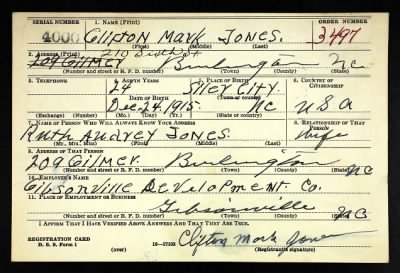 SERIAL NUMBER 1. NAME (Print) ORDER NUMBER
4000 Clifton Mark Jones. 3497
(First) (Middle) (Last)
2. ADDRESS (Print) 210 Sixth St
209 Gilmer Burlington NC
(Number and street or R. F. D. number) (Town) (County) (State)
3. TELEPHONE 4. AGE IN YEARS 5. PLACE OF BIRTH 6. COUNTRY OF CITIZENSHIP
24 Siler City.
DATE OF BIRTH (Town or county)
Dec-24-1915. NC USA
(Exchange) (Number) (Mo.) (Day) (Yr.) (State or country)
7. NAME OF PERSON WHO WILL ALWAYS KNOW YOUR ADDRESS 8. RELATIONSHIP OF THAT PERSON
Ruth Audrey Jones. Wife
(Mr., Mrs., Miss) (First) (Middle) (Last)
9. ADDRESS OF THAT PERSON
209 Gilmer. Burlington NC
(Number and street or R. F. D. number) (Town) (County) (State)
10. EMPLOYER'S NAME
Gibsonville Development. Co.
11. PLACE OF EMPLOYMENT OR BUSINESS
Gibsonville NC
(Number and street or R. F. D. number) (Town) (County) (State)
I AFFIRM THAT I HAVE VERIFIED ABOVE ANSWERS AND THAT THEY ARE TRUE.
REGISTRATION CARD
D. S. S. Form 1 16—17105 Clifton Mark Jones
(Registrant's signature)